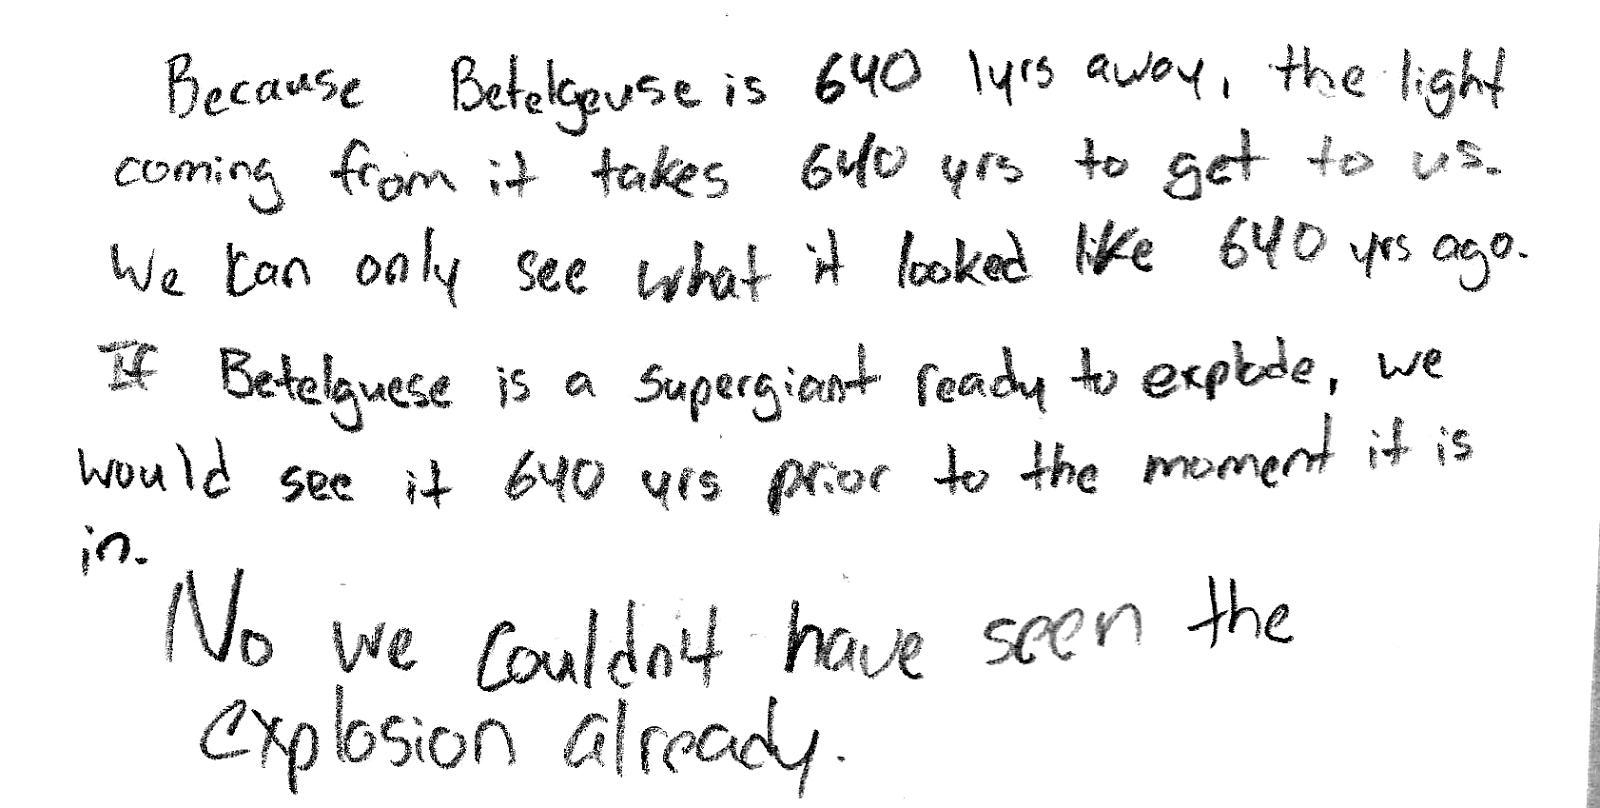 Because Betelgeuse is 640 lyrs away, the light
coming from it takes 640 yrs to get to us.
We can only see what it looked like 640 yrs ago.
If Betelguese is a supergiant ready to explode, we
would see it 640 yrs prior to the moment it is
in.
No we couldn't have seen the
explosion already.